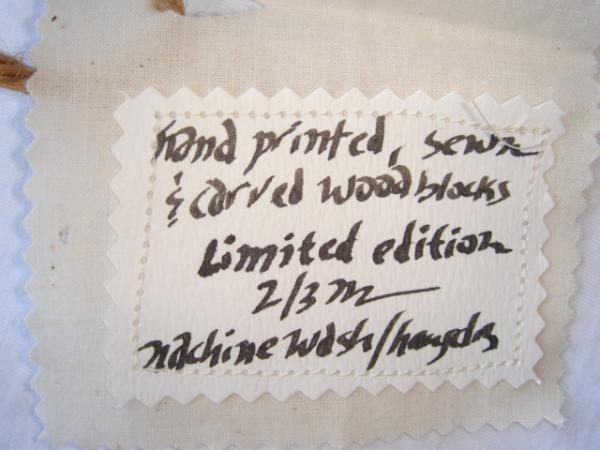 hand printed, sewn
& carved wood blocks
Limited edition
2/3
machine wash/hang dry